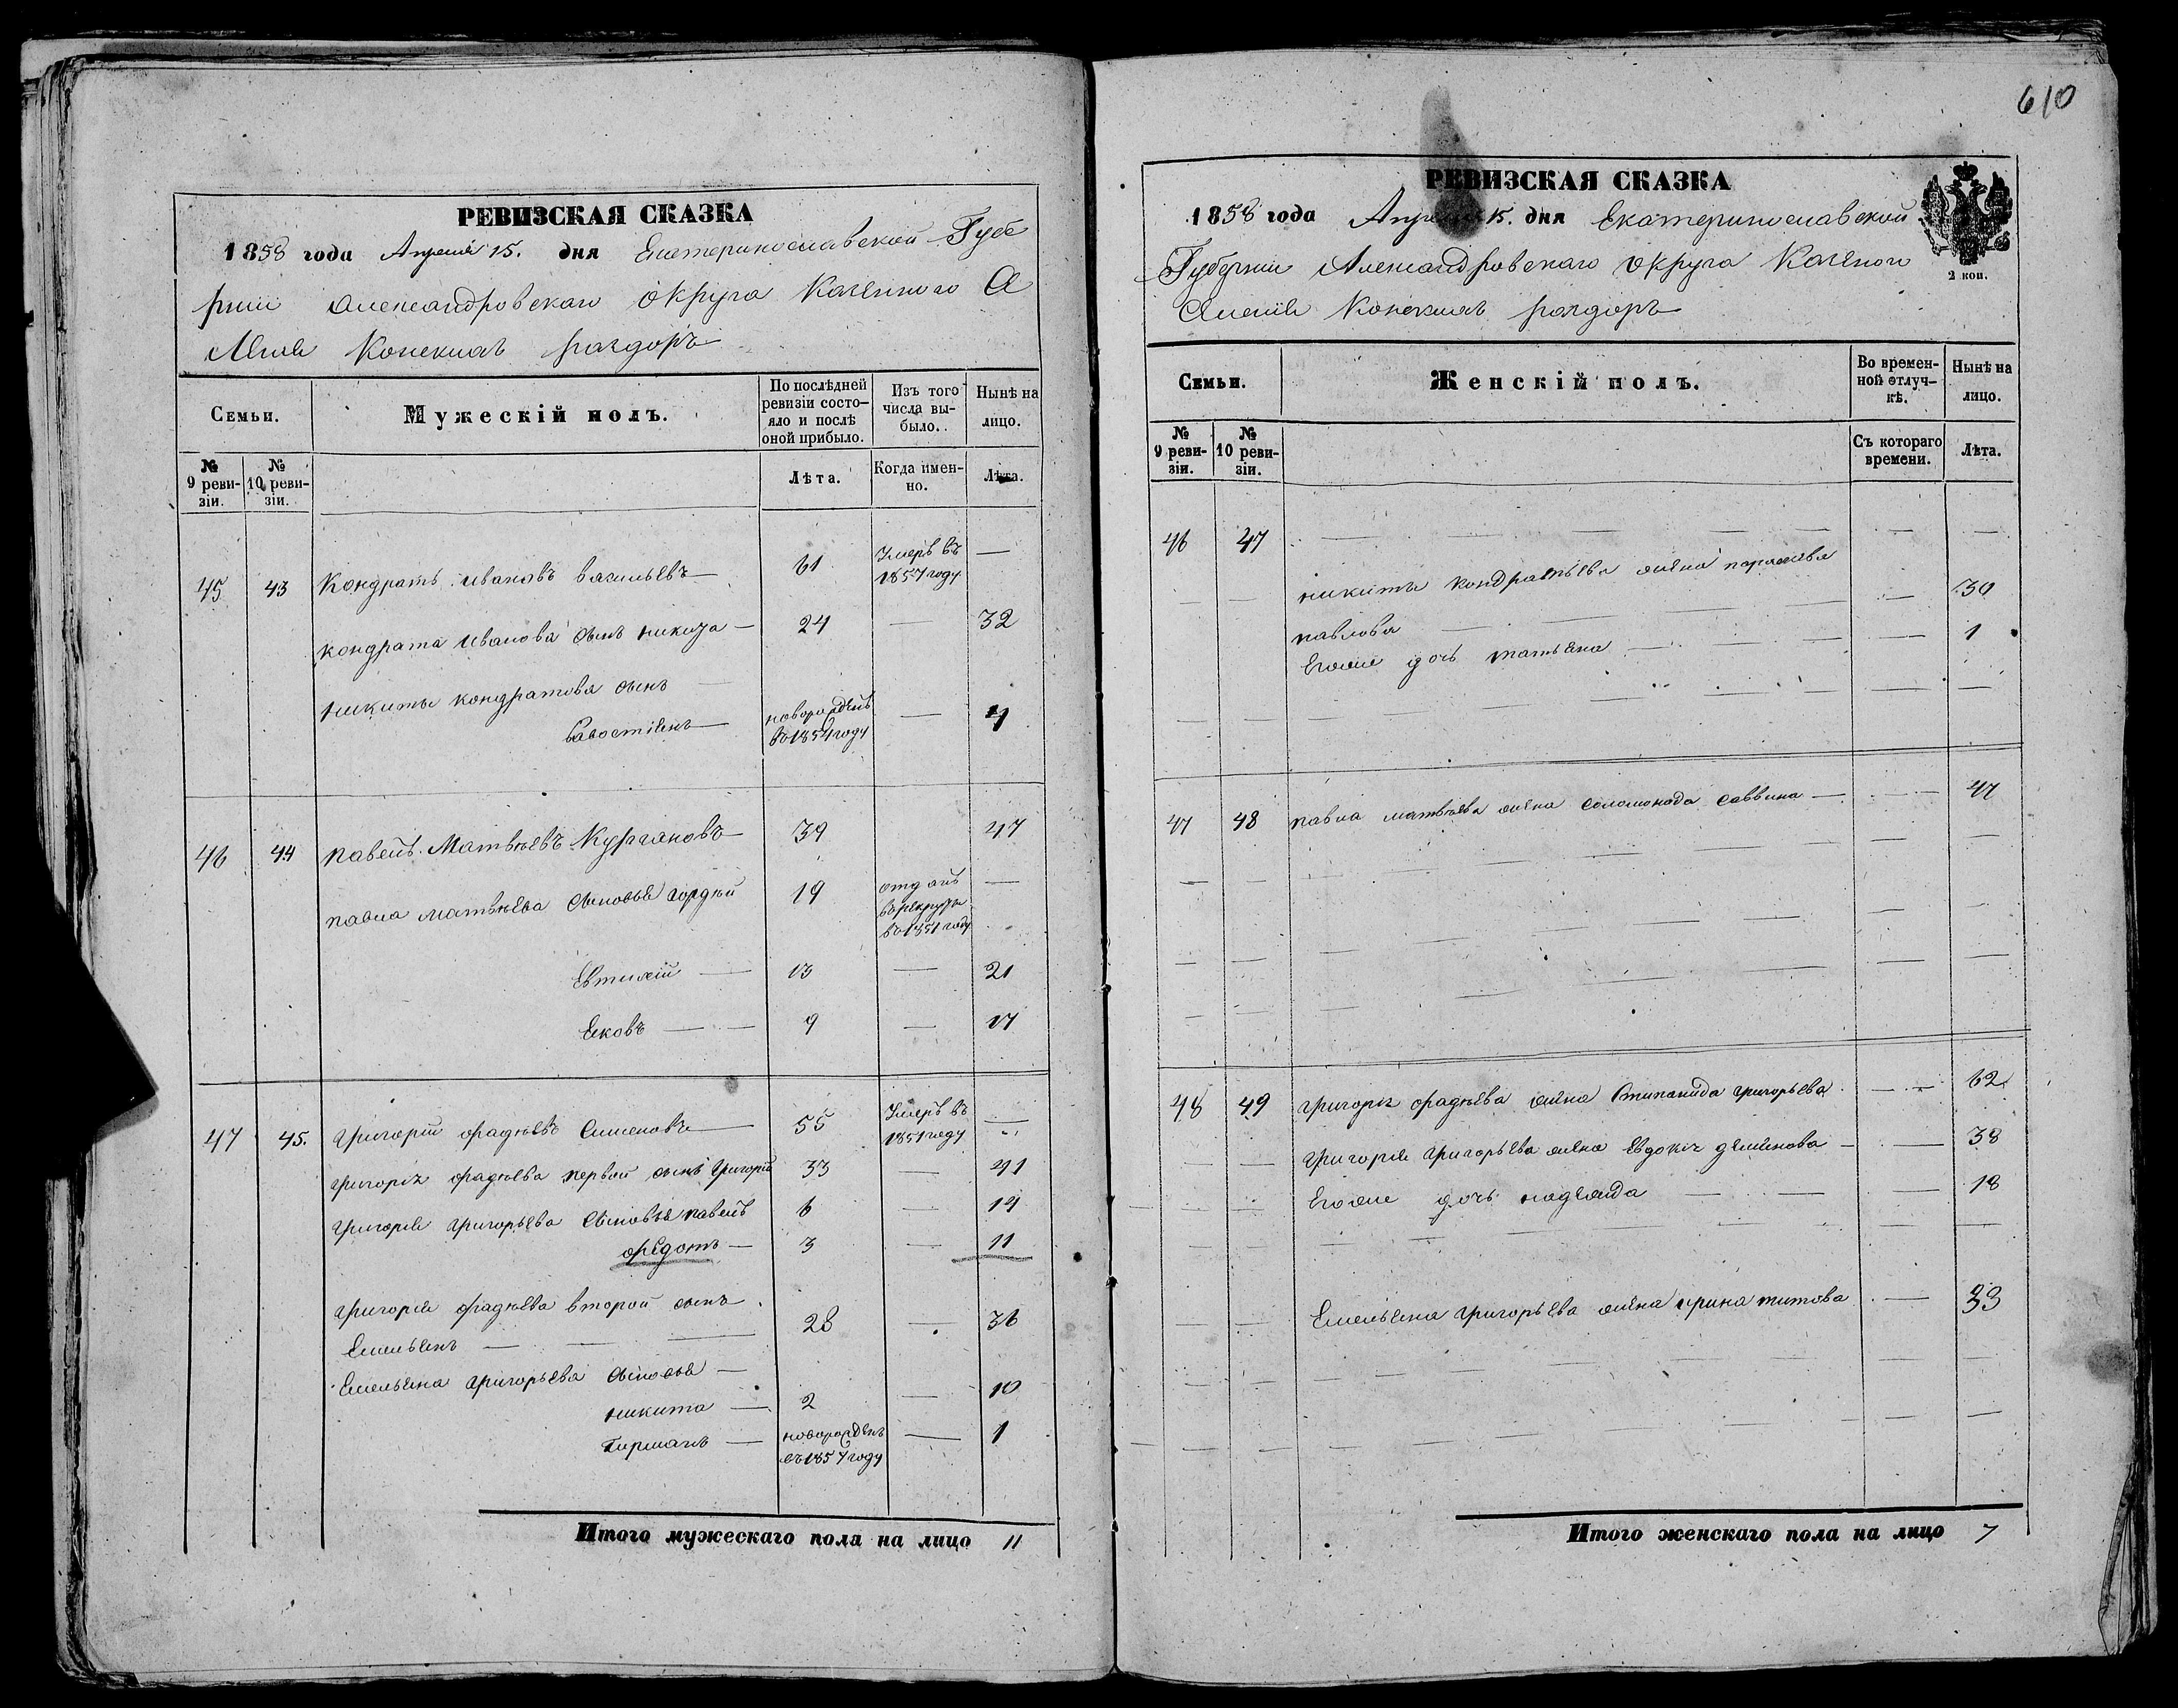 РЕВИЗСКАЯ СКАЗКА
1858 года Апреля 15. дня Екатеринославской Губе
рнии Александровскаго округа Казеннаго С
Конскихъ раздоръ
Семьи.
Мужескій полъ.
По послѣдней ревизіи состо-
яло и послѣ оной прибыло.
Изъ того числа вы-
было.
Нынѣ на лицо.
№ 9 реви-
зіи.
№ 10 реви-
зіи.
Лѣта.
Когда имен-
но.
Лѣта.
45 43 Кондратъ Ивановъ Васильевъ — 61 Умеръ въ —
1857 году
Кондрата Иванова сынъ Никита — 24 — 32
Никиты Кондратова сынъ —
Савостіенъ — новорожденъ — 4
въ 1854 году
46 44 Павелъ Матвѣевъ Кургановъ — 39 47
Павла Матвѣева сыновья Гордѣй 19 отданъ —
въ рекруты
въ 1851 году
Евтихій — 13 — 21
Ековъ — — 9 — 17
47 45. Григорій Фадѣевъ Симоновъ — 55 Умеръ въ —
1851 году
Григорія Фадѣева первой сынъ Григорій 33 — 41
Григорія Григорьева сыновья Павелъ 6 — 14
Федотъ — 3 — 11
Григорія Фадѣева второй сынъ
Емельенъ — — — 28 — 36
Емельена Григорьева сыновья —
Никита — 2 — 10
Гирманъ — новорожденъ — 1
въ 1857 году
Итого мужескаго пола на лицо 11
610
РЕВИЗСКАЯ СКАЗКА
1858 года Апреля 15. дня Екатеринославской
Губернии Александровскаго округа Казеного
Конскихъ раздоръ
2 коп.
Семьи.
Женскій полъ.
Во времен-
ной отлуч-
кѣ.
Нынѣ на лицо.
№ 9 реви-
зіи.
№ 10 реви-
зіи.
Съ котораго времени.
Лѣта.
46 47
Никиты Кондратьева жена Парасковья
Павлова — 30
Егоже дочь Татьяна — 1
47 48 Павла Матвѣева жена Соломонида Саввина — 47
48 49 Григорія Фадѣева жена Стипанида Григорьева — 62
Григорія Григорьева жена Евдокія Деменова — 38
Егоже дочь Надежда — 18
Емельена Григорьева жена Ирина Титова — 33
Итого женскаго пола на лицо 7